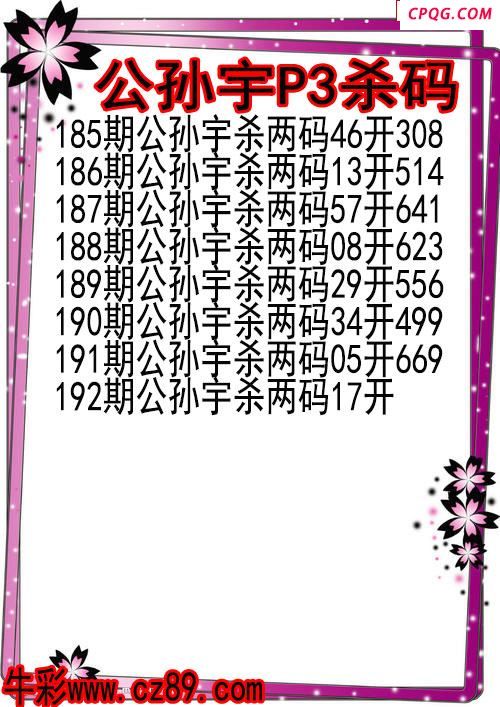 CPQG.COM
公孙宇P3杀码
185期公孙宇杀两码46开308
186期公孙宇杀两码13开514
187期公孙宇杀两码57开641
188期公孙宇杀两码08开623
189期公孙宇杀两码29开556
190期公孙宇杀两码34开499
191期公孙宇杀两码05开669
192期公孙宇杀两码17开
牛彩www.cz89.com